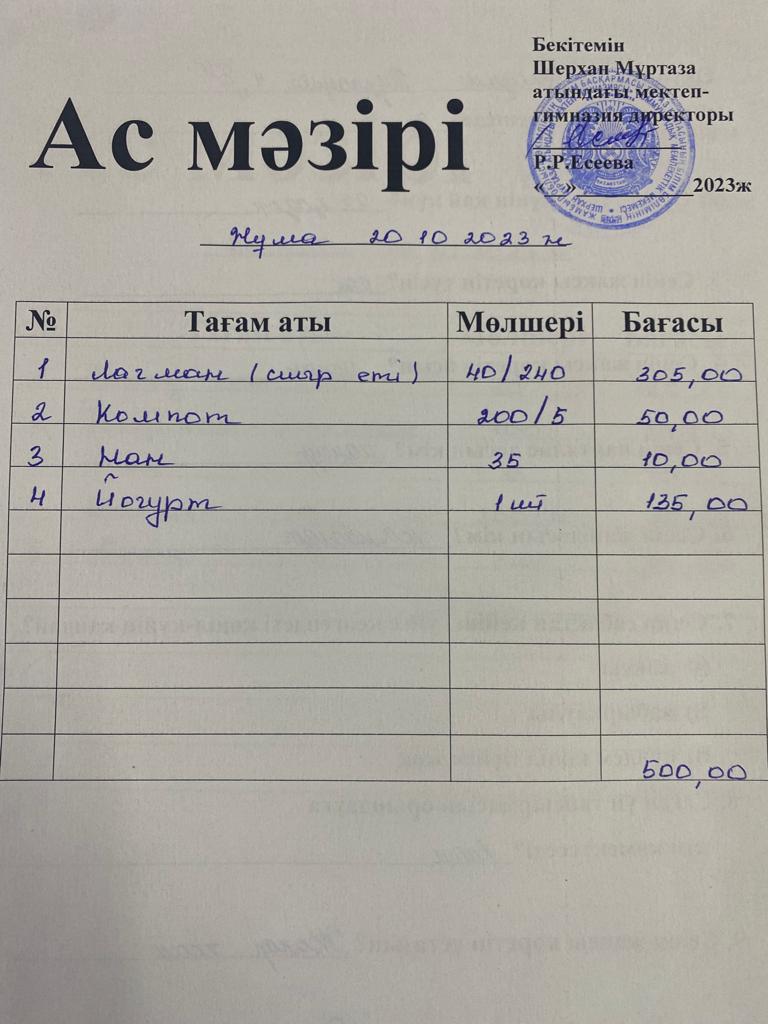 Бекітемін
Шерхан Мұртаза
атындағы мектеп-
гимназия директоры
Р.Р.Есеева
«__»________ 2023ж
Ас мәзірі
Жұма 20 10 2023 ж
№ Тағам аты Мөлшері Бағасы
1 Лагман (сиыр еті) 40/240 305,00
2 Компот 200/5 50,00
3 Нан 35 10,00
4 Йогурт 1 шт 135,00
500,00